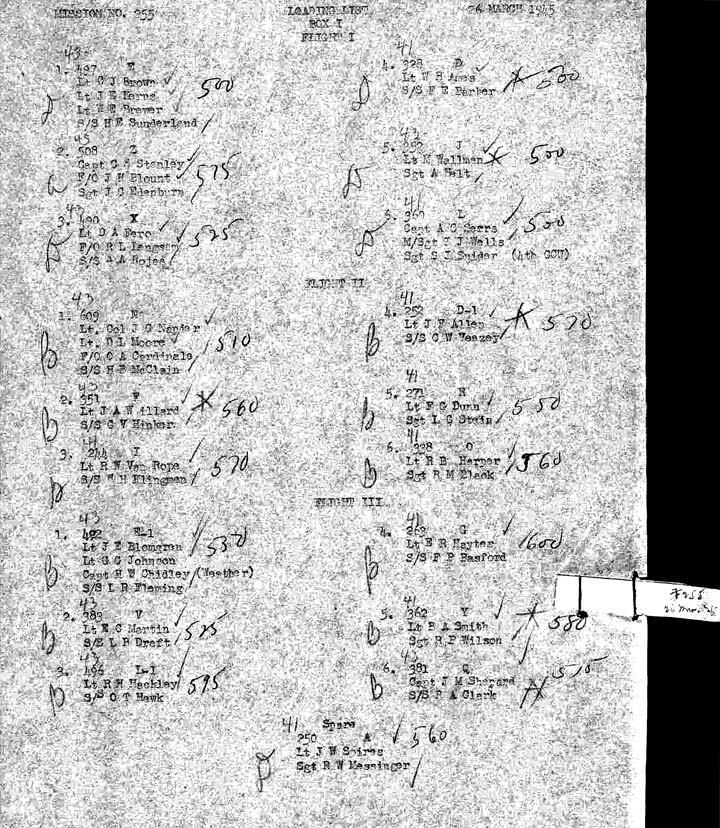 MISSION NO. 255
LOADING LIST
26 MARCH 1945
BOX I
FLIGHT I
43
1. 497 E
Lt C J Brown
Lt J E Kerns
Lt W E Brewer
S/S H E Sunderland
500
43
2. 508 Z
Capt G A Stanley
F/O J H Blount
Sgt J C Edenburn
575
43
3. 490 X
Lt D A Fero
F/O R L
S/S A A Rojas
525
41
4. 328 D
Lt W H Ames
S/S F E Barber
500
43
5. J
Lt M Wallman
Sgt A Halt
500
41
6. 360 L
Capt A C Serrs
M/Sgt J J Wells
Sgt S J Snider (4th CCU)
500
FLIGHT II
43
1. 609 N
Lt. Col J G Napier
Lt. D L Moore
F/O C A Cardinals
S/S H B McClain
510
43
2. 351 F
Lt J A Willard
S/S G V Hinker
560
41
3. 244 I
Lt R W Van Rope
S/S W H Klingman
570
41
4. 252 D-1
Lt J F Allen
S/S O W Veazey
570
41
5. 271 H
Lt F G Dunn
Sgt L G Stein
550
41
6. 328 O
Lt R B Harper
Sgt R M Black
560
FLIGHT III
43
1. 492 E-1
Lt J E Blomgren
Lt G G Johnson
Capt H W Chidley (Weather)
S/S L R Fleming
530
43
2. 383 V
Lt E C Martin
S/S L R Draft
525
43
3. 496 L-1
Lt R H Hackley
S/S O T Hawk
595
41
4. 263 G
Lt E R Hayter
S/S F P Basford
600
41
5. 362 Y
Lt B A Smith
Sgt R P Wilson
580
43
6. 381 Q
Capt J M Shepard
S/S R A Clark
515
#255
26 Mar 45
41 Spare
250 A
Lt J W Spires
Sgt R W Messinger
560